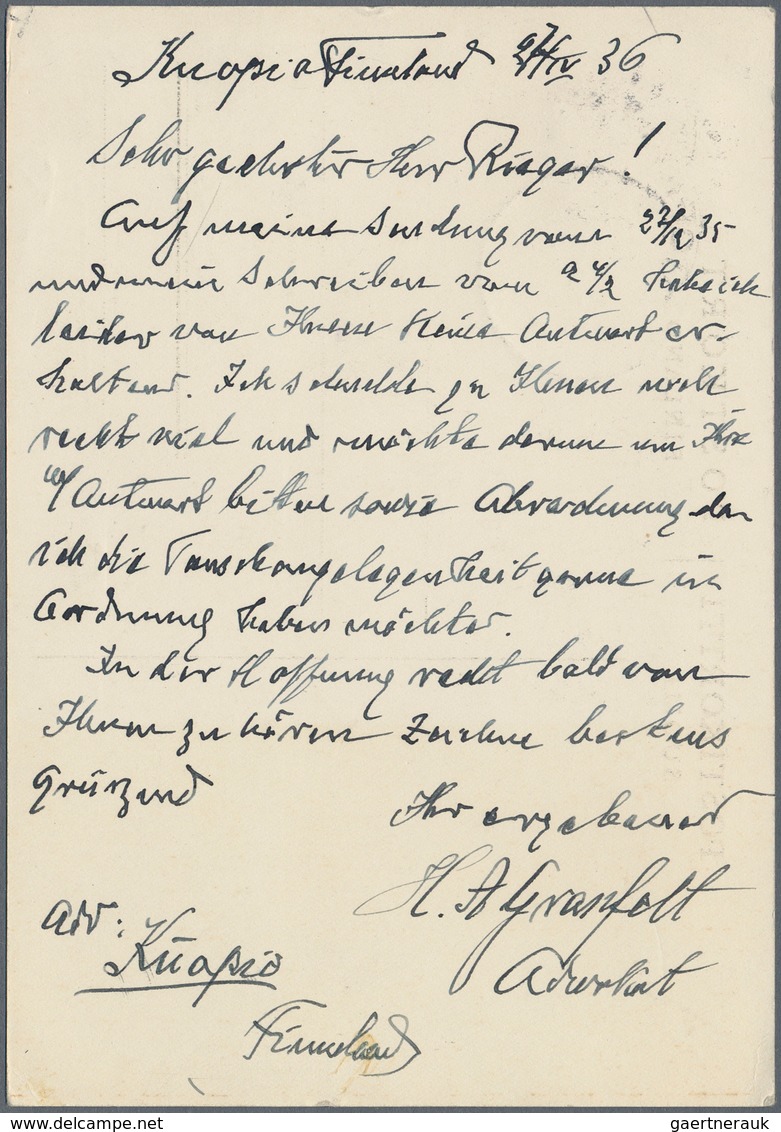 Kuopio Finnland 27/IV 36
Sehr geehrter Herr Rieger!
Auf meine Sendung vom 27/12 35
und mein Schreiben vom 24/2 habe ich
leider von Ihnen keine Antwort er-
halten. Ich schulde ja Ihnen noch
recht viel und möchte darum um Ihre
Antwort bitten sowie Abrechnung da
ich die Tauschangelegenheit gerne in
Ordnung haben möchte.
In der Hoffnung recht bald von
Ihnen zu hören zeichne bestens
grüszend
Ihr ergebener
H. A Granfelt
Advokat
Adr:
Kuopio
Finnland
gaertnerauk